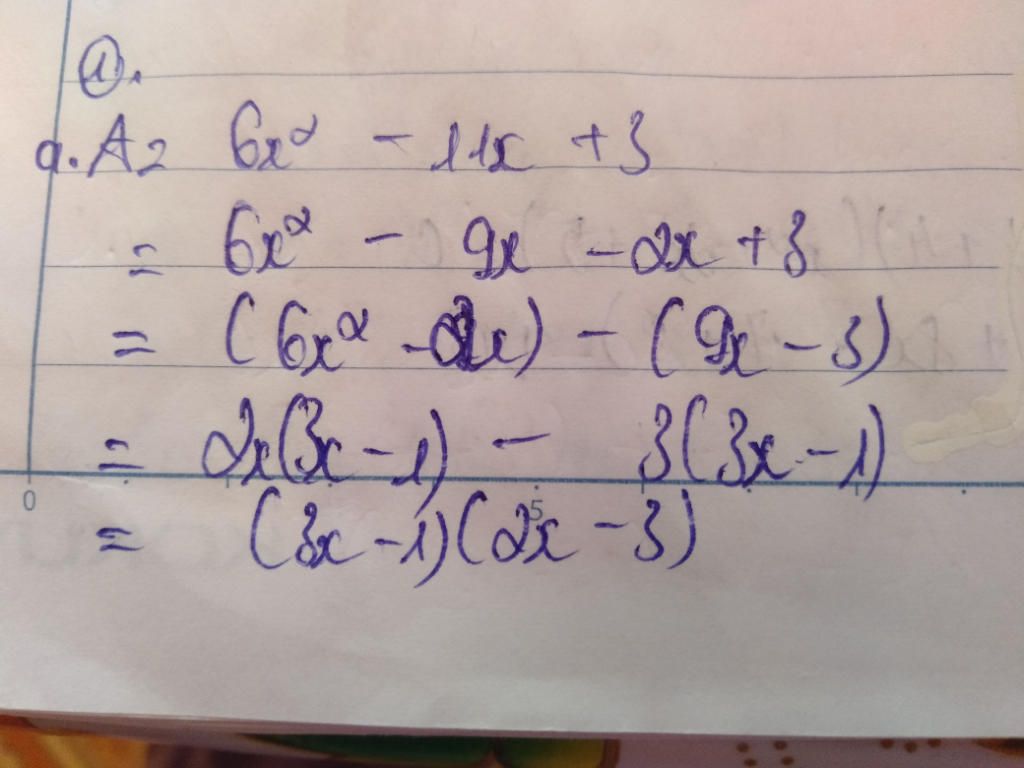 ①.
a. A = 6x² - 11x + 3
= 6x² - 9x - 2x + 3
= (6x² - 2x) - (9x - 3)
= 2x(3x - 1) - 3(3x - 1)
0
= (3x - 1)(2x - 3)
5